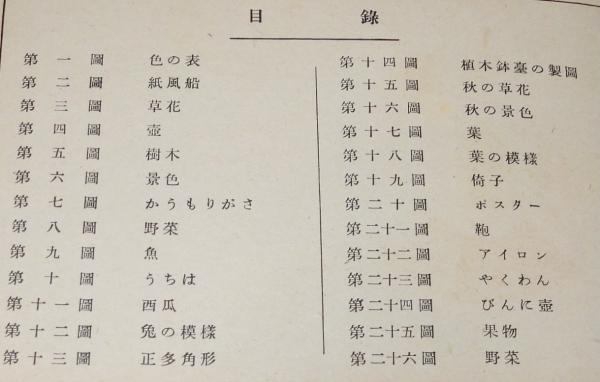 目錄
第一圖 色の表
第二圖 紙風船
第三圖 草花
第四圖 壺
第五圖 樹木
第六圖 景色
第七圖 かうもりがさ
第八圖 野菜
第九圖 魚
第十圖 うちは
第十一圖 西瓜
第十二圖 兎の模樣
第十三圖 正多角形
第十四圖 植木鉢臺の製圖
第十五圖 秋の草花
第十六圖 秋の景色
第十七圖 葉
第十八圖 葉の模樣
第十九圖 倚子
第二十圖 ポスター
第二十一圖 鞄
第二十二圖 アイロン
第二十三圖 やくわん
第二十四圖 びんに壺
第二十五圖 果物
第二十六圖 野菜